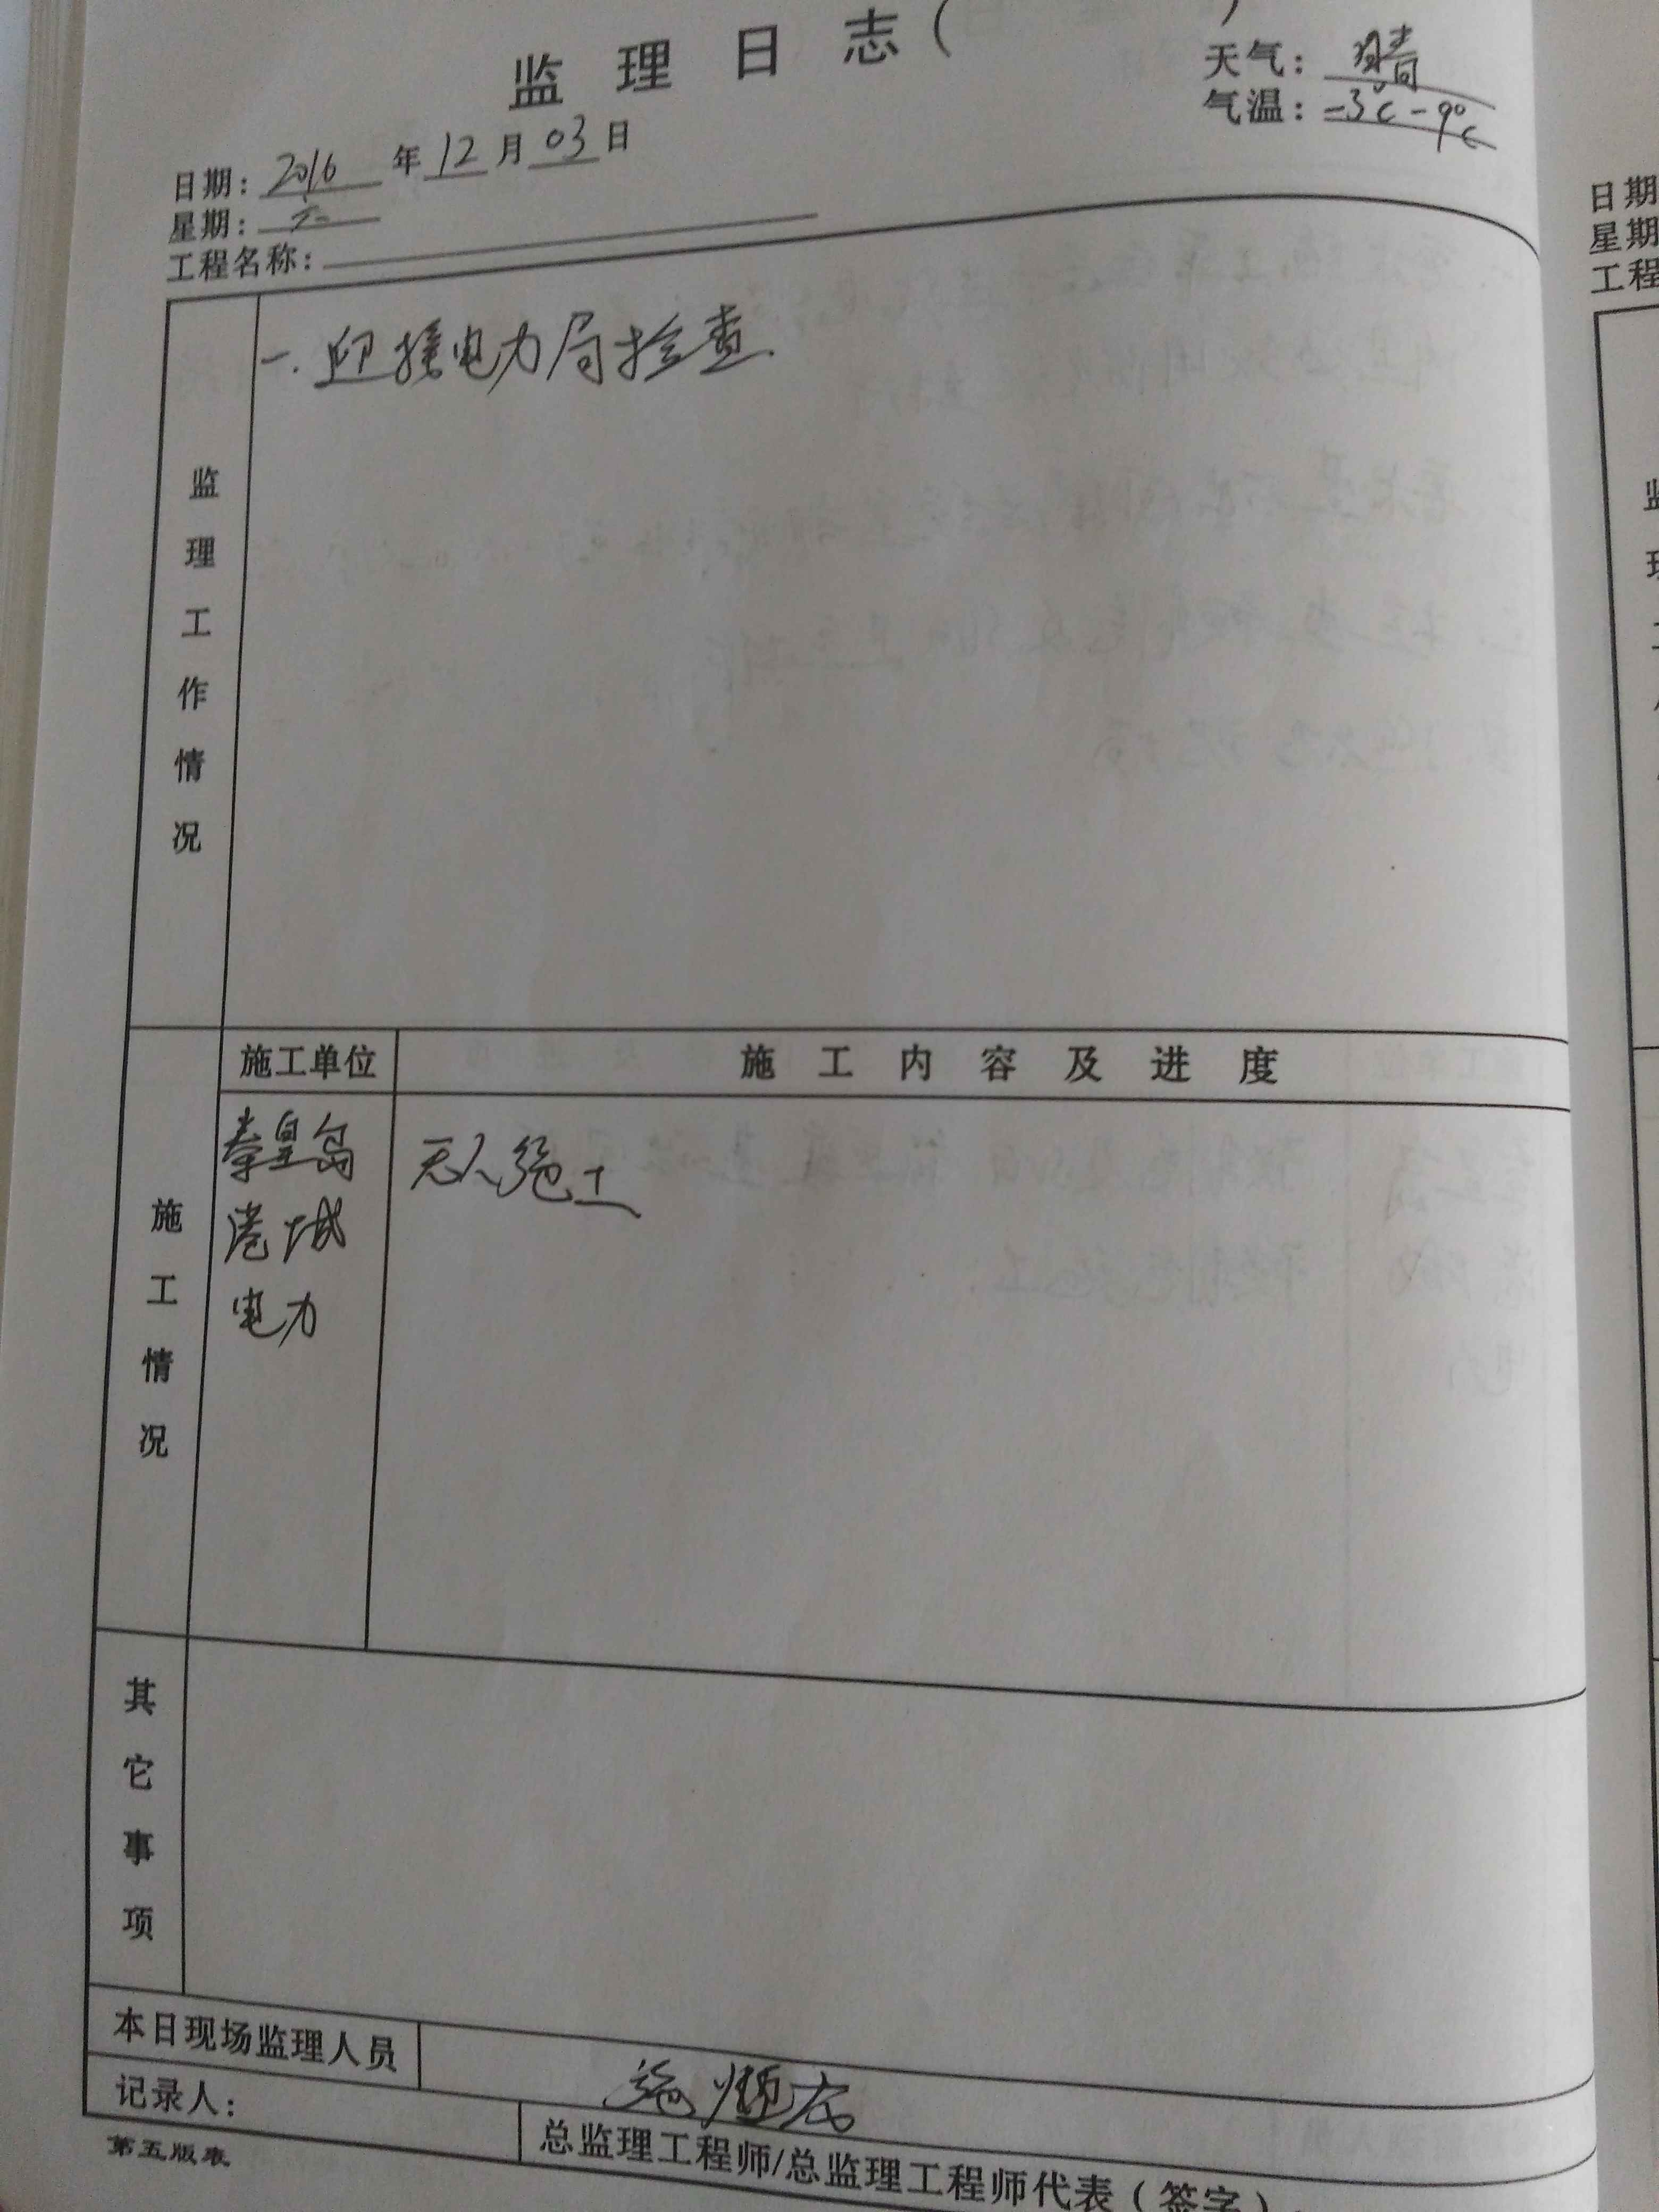 监理日志（ ）
天气：晴
气温：-3℃-9℃
日期：2016年12月03日
星期：六
工程名称：
监理工作情况
一.迎接电力局检查.
施工情况
施工单位
施工内容及进度
秦皇岛
港城
电力
无人施工
其它事项
本日现场监理人员
记录人：
总监理工程师/总监理工程师代表（签字）
第五版表
日期
星期
工程